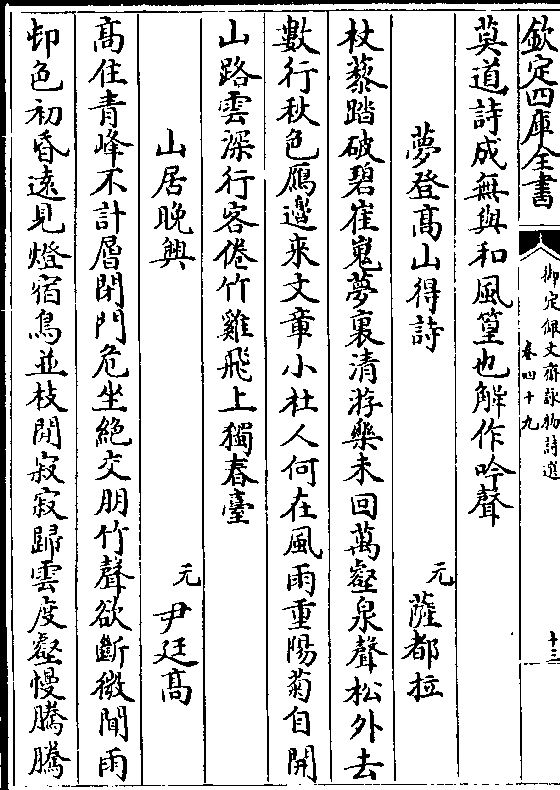 欽定四庫全書
御定佩文齋詠物詩選
卷四十九
十三
莫道詩成無與和風篁也解作吟聲
夢登髙山得詩
元
薩都拉
杖藜踏破碧崔嵬夢裏清游樂未回萬壑泉聲松外去
數行秋色鴈邉來文章小杜人何在風雨重陽菊自開
山路雲深行客倦竹雞飛上獨春臺
山居晚興
元
尹廷髙
髙住青峰不計層閉門危坐絶交朋竹聲欲斷微聞雨
邨色初昏遠見燈宿鳥並枝閒寂寂歸雲度壑慢騰騰